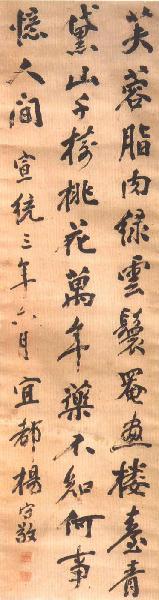 芙蓉脂肉綠雲鬟罨畫樓臺青
黛山千樹桃花萬年藥不知何事
憶人間 宣統三年六月宜都楊守敬